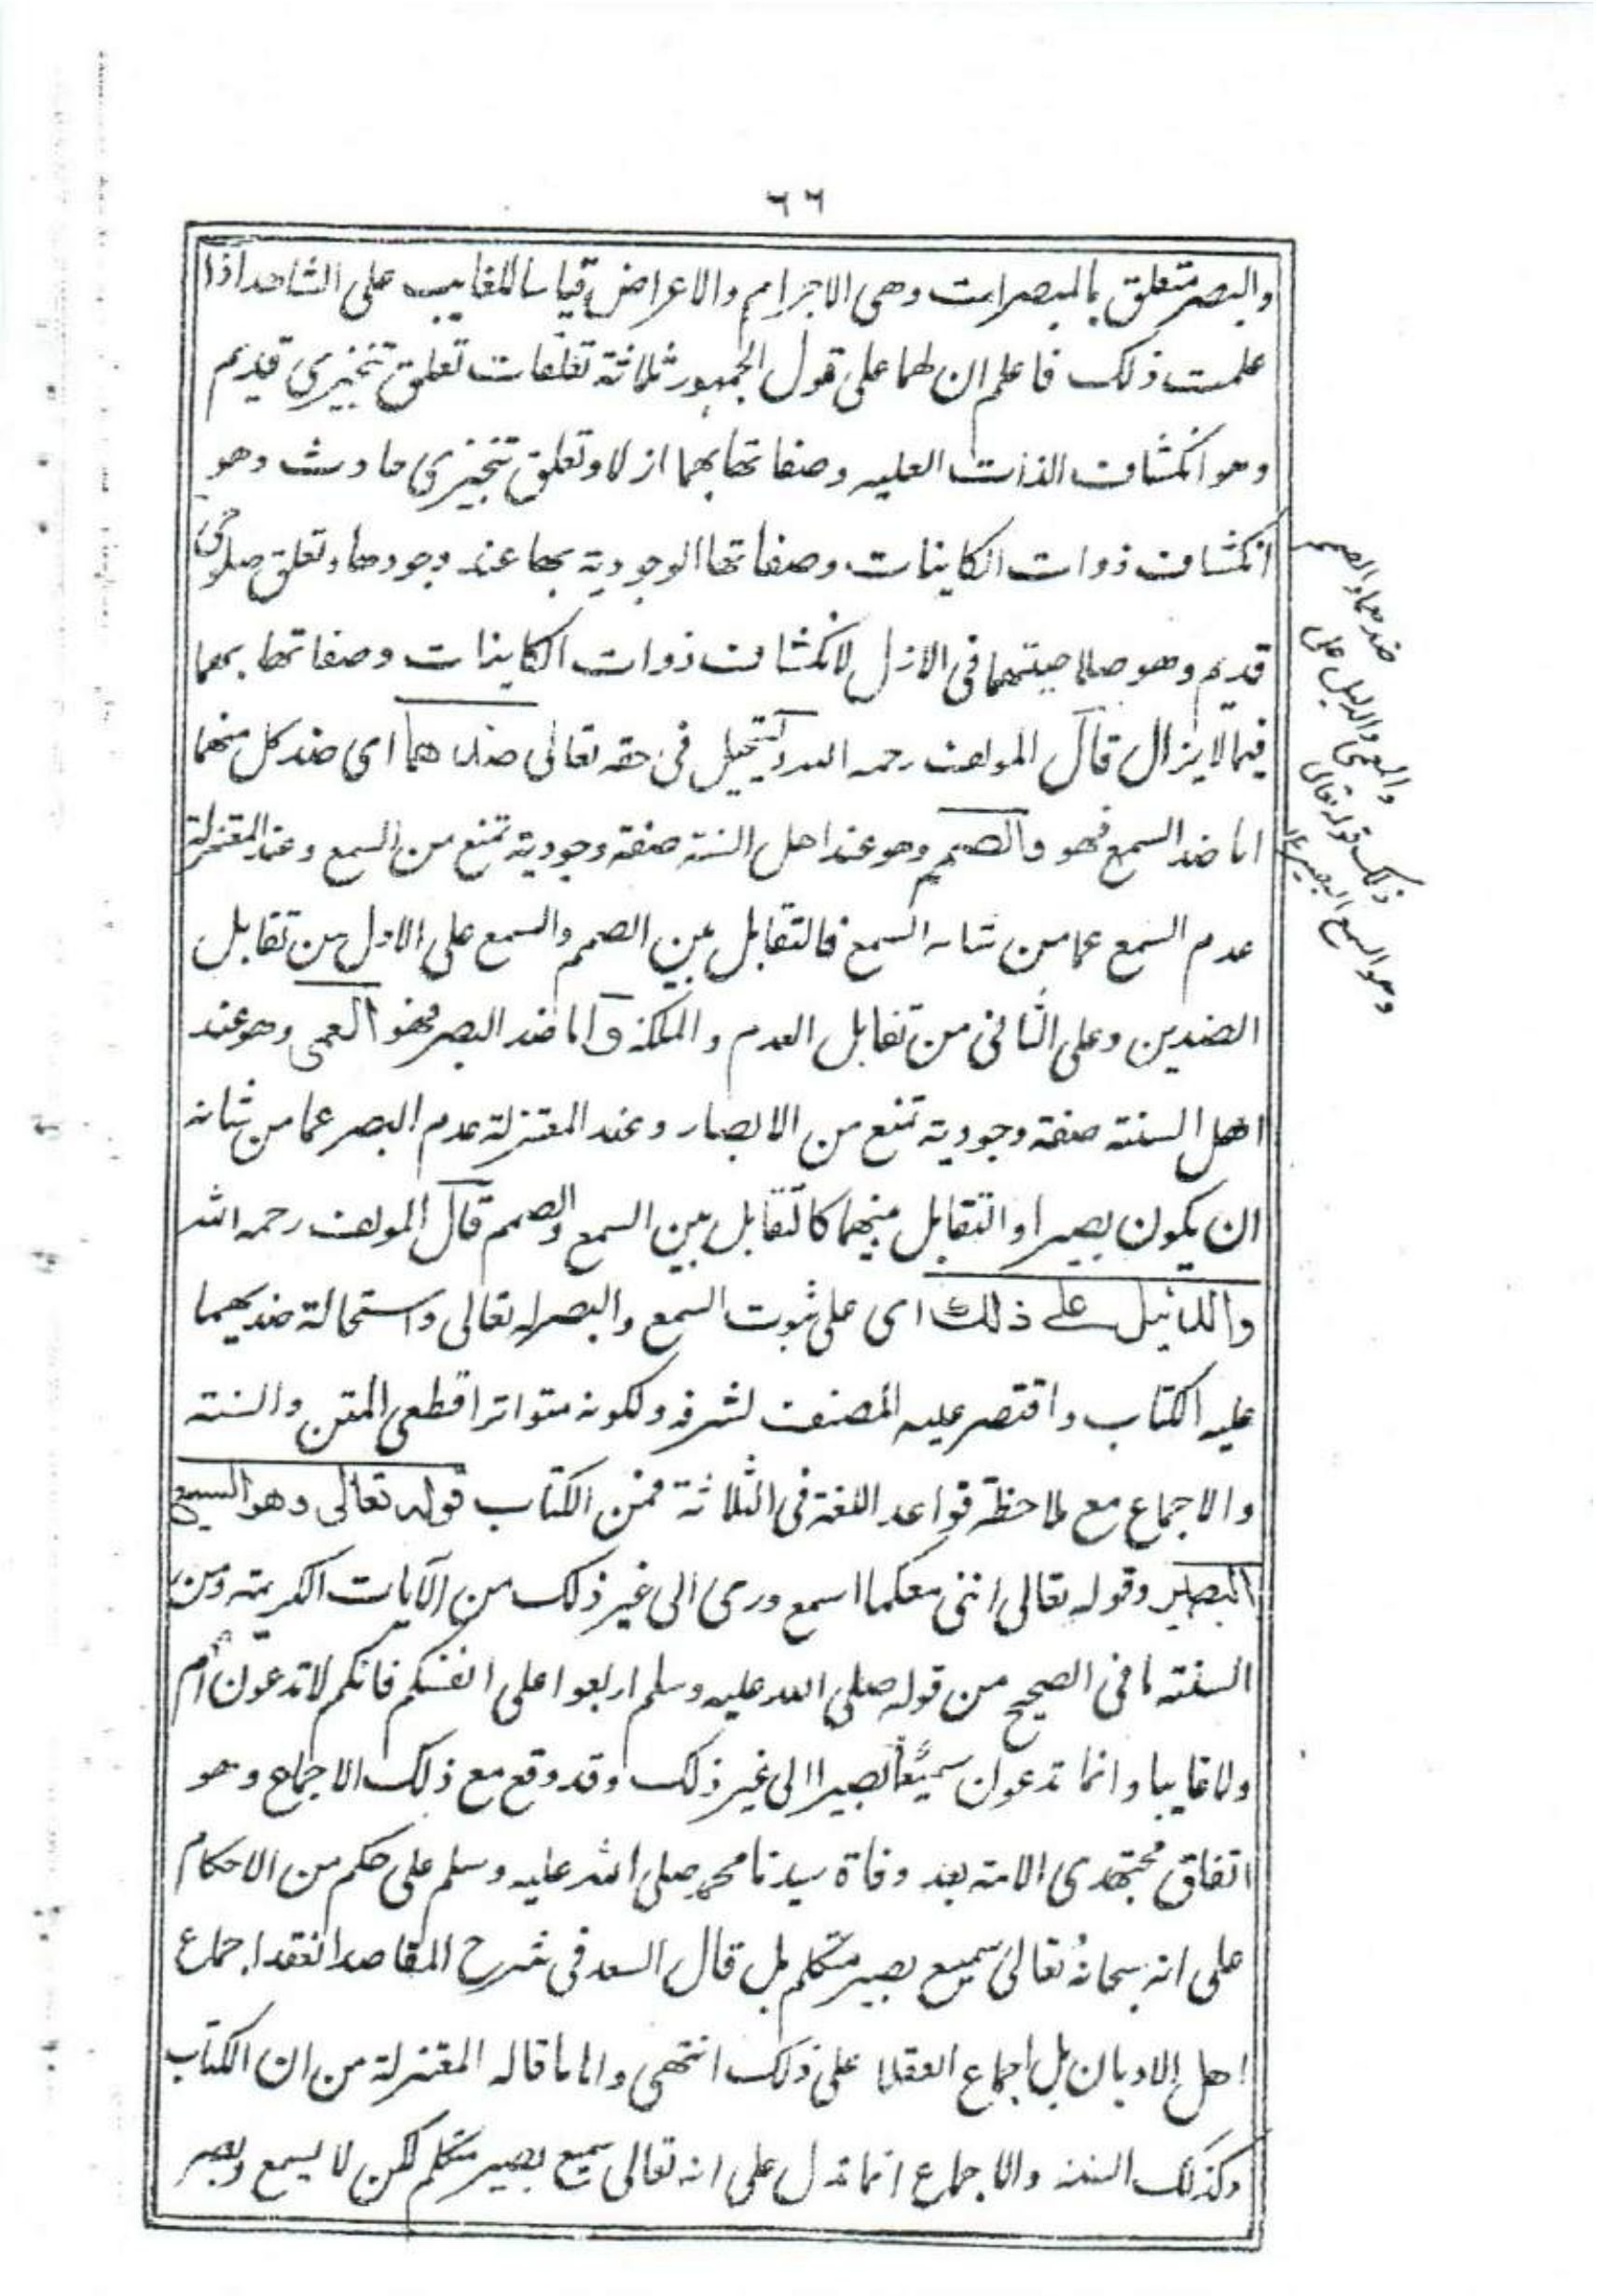 ٦٦
والبصر متعلق بالمبصرات وهى الاجرام والاعراض قياسا للغايب على الشاهد اذا
علمت ذلك فاعلم ان لهما على قول الجمهور ثلاثة تعلقات تعلق تنجيزي قديم
وهو انكشاف الذات العليه وصفاتها بهما ازلا وتعلق تنجيزي حادث وهو
انكشاف ذوات الكاينات وصفاتها الوجودية بهما عند وجودها وتعلق صلوحي
قديم وهو صلاحيتهما فى الازل لانكشاف ذوات الكاينات وصفاتها بهما
فيما لا يزال قال المولف رحمه الله ويستحيل فى حقه تعالى ضدهما اى ضد كل منهما
اما ضد السمع فهو والصمم وهو عند اهل السنة صفة وجودية تمنع من السمع وعند المعتزلة
عدم السمع عما من شانه السمع فالتقابل بين الصمم والسمع على الاول من تقابل
الضدين وعلى الثانى من تقابل العدم والملكة واما ضد البصر فهو العمى وهو عند
اهل السنة صفة وجودية تمنع من الابصار وعند المعتزلة عدم البصر عما من شانه
ان يكون بصيرا والتقابل بينهما كالتقابل بين السمع والصمم قال المولف رحمه الله
والدليل على ذلك اى على ثبوت السمع والبصر له تعالى واستحالة ضديهما
عليه الكتاب واقتصر عليه المصنف لشرفه ولكونه متواترا قطعى المتن والسنة
والاجماع مع ملاحظة قواعد اللغة فى الثلاثة فمن الكتاب قوله تعالى وهو السميع
البصير وقوله تعالى اننى معكما اسمع وارى الى غير ذلك من الآيات الكريمة ومن
السنة ما فى الصحيح من قوله صلى الله عليه وسلم اربعوا على انفسكم فانكم لا تدعون اصم
ولا غايبا وانما تدعون سميعا بصيرا الى غير ذلك وقد وقع مع ذلك الاجماع وهو
اتفاق مجتهدى الامة بعد وفاة سيدنا محمد صلى الله عليه وسلم على حكم من الاحكام
على انه سبحانه تعالى سميع بصير متكلم بل قال السعد فى شرح المقاصد انعقد اجماع
اهل الاديان بل اجماع العقلا على ذلك انتهى واما ما قاله المعتزلة من ان الكتاب
وكذلك السنة والاجماع انما تدل على انه تعالى سميع بصير متكلم لكن لا يسمع وبصر
ضدهما والصمم
والعمى والدليل على
ذلك قوله تعالى
وهو السميع البصير ١٢